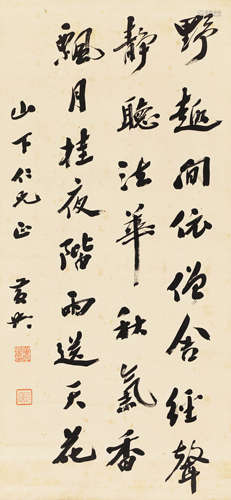 野趣間依僧舍經聲
靜聽法華秋氣香
飄月桂夜階雨送天花
山下仁兄正
黃興